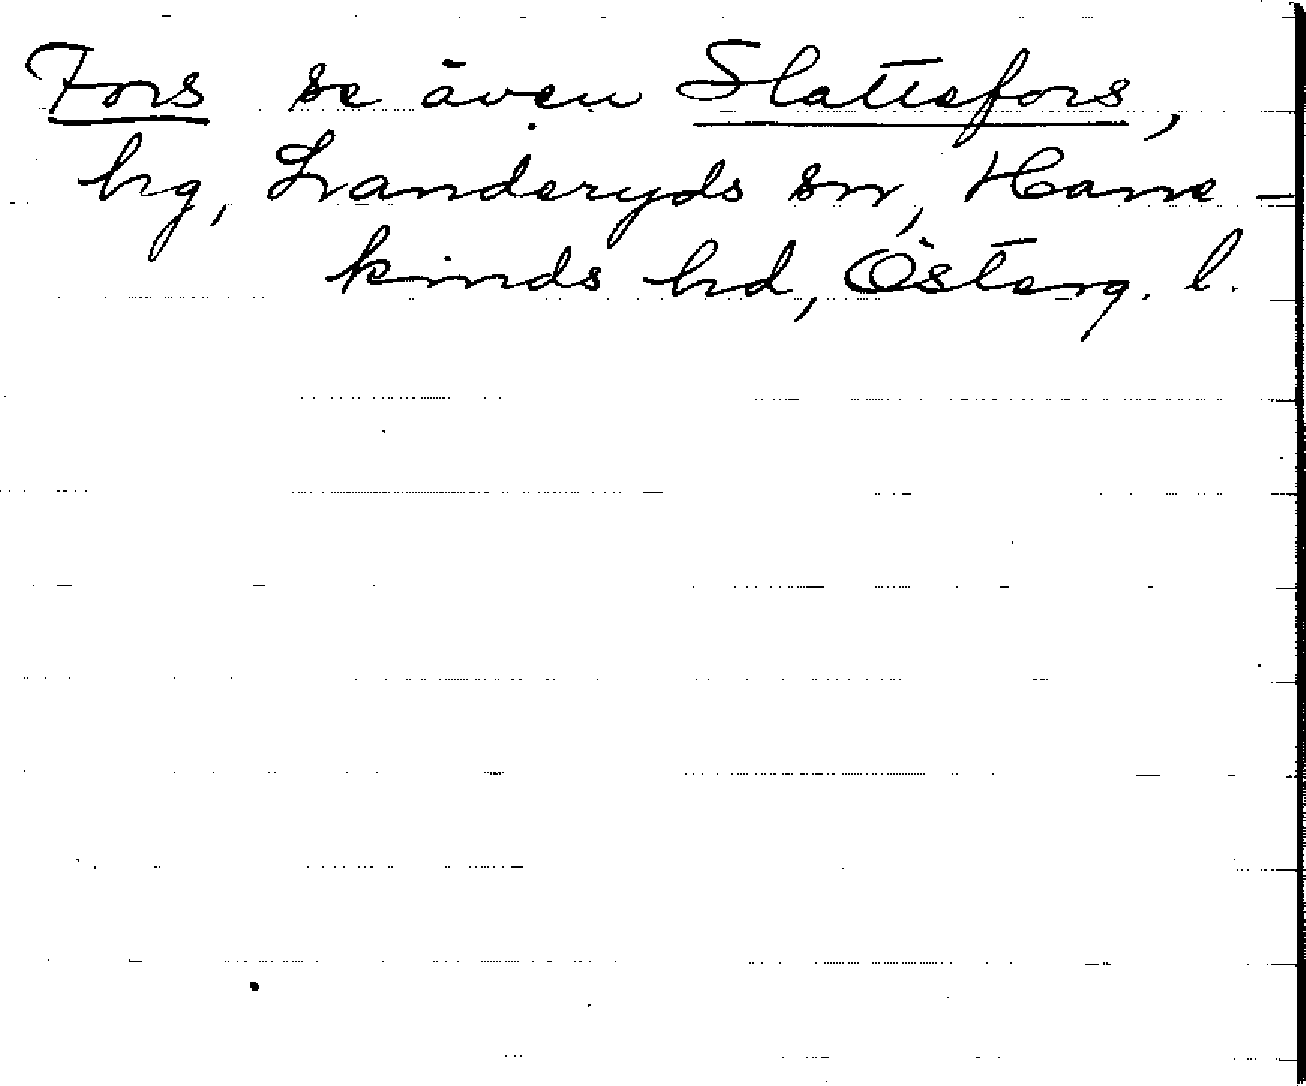 Fors se även Slattefors,
hg, Landeryds sn, Hane-
kinds hd, Österg. l.